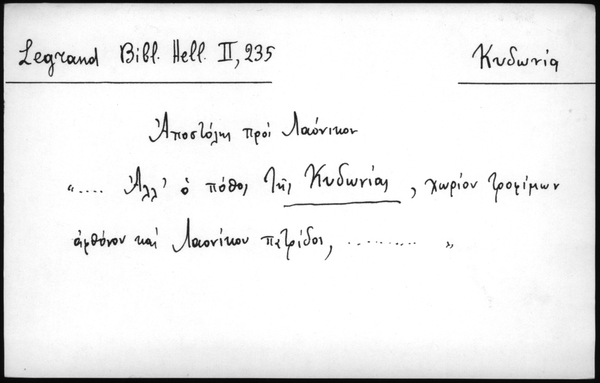 Legrand Bibl. Hell. II, 235
Κυδωνία
Ἀποστόλης πρὸς Λαόνικον
".... Ἀλλ' ὁ πόθος τῆς Κυδωνίας, χωρίον τροφίμων
ἀφθόνον καὶ Λαονίκου πατρίδος, .......... "